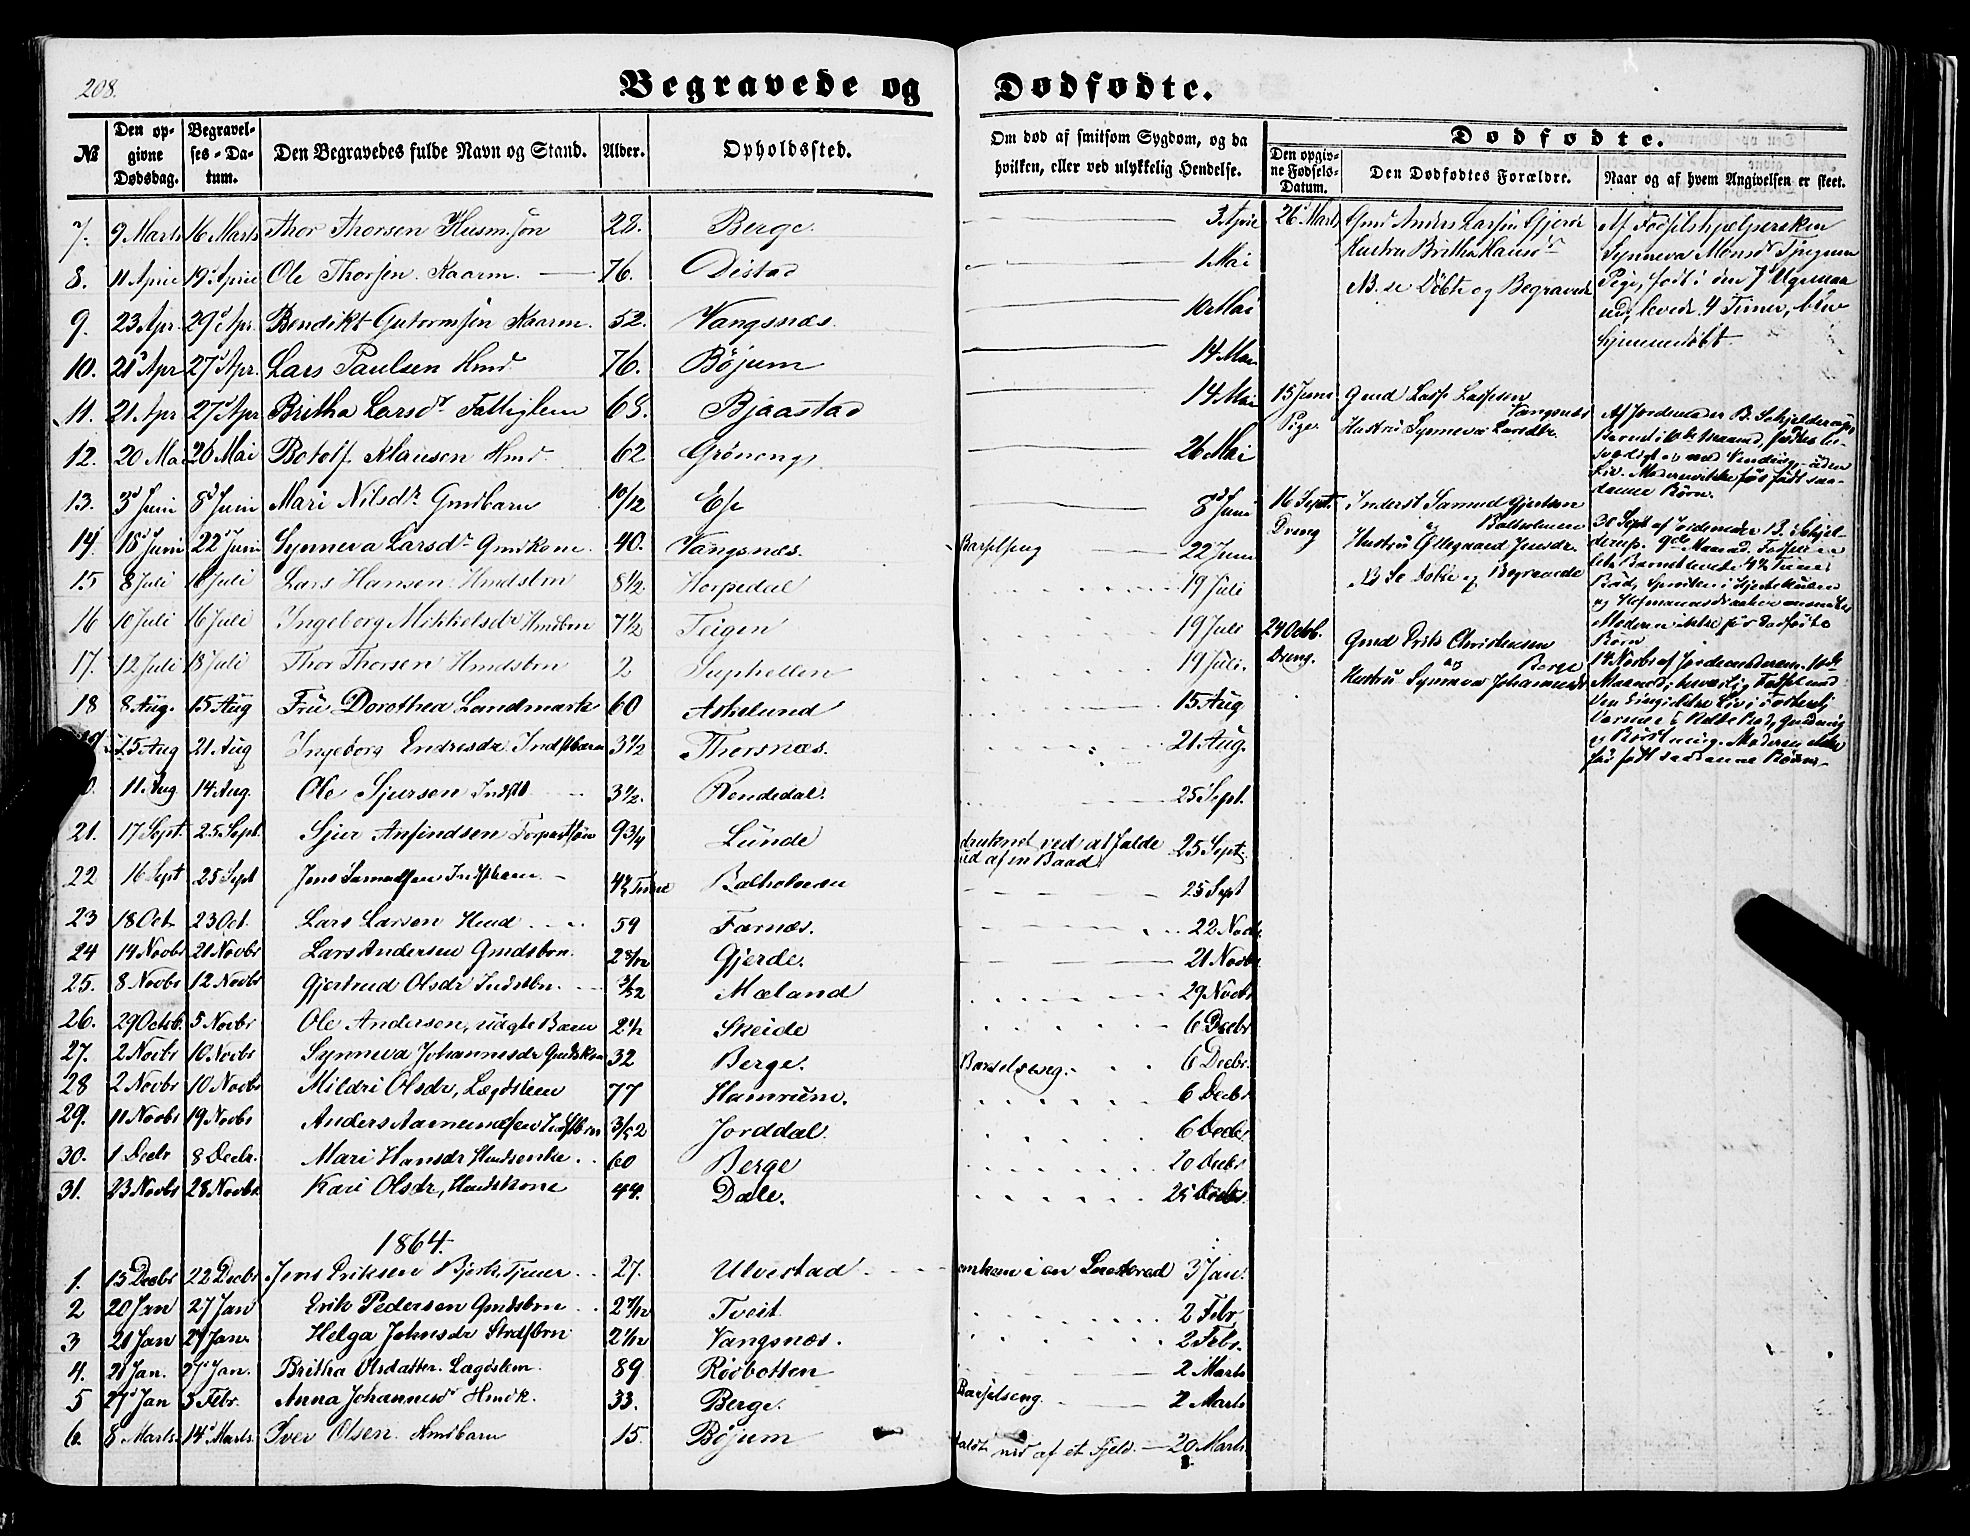 208.
Begravede og Dødfødte.
№
Den opgivne Dødsdag.
Begravelses-Datum.
Den Begravedes fulde Navn og Stand.
Alder.
Opholdssted.
Om død af smitsom Sygdom, og da hvilken, eller ved ulykkelig Hendelse.
Dødfødte.
Den opgivne Fødsels-Datum.
Den Dødfødtes Forældre.
Naar og af hvem Angivelsen er skeet.
7. 9 Marts 16 Marts Thor Thorsen Husm.søn 28. Berge 3 April
8. 11 April 19 April Ole Thorsen Kaarm. 76. Distad 1 Mai
9. 23 Apr. 29 Apr. Bendikt Guttormsen Kaarm. 52. Vangsnæs. 10 Mai
10. 21 Apr 27 Apr. Lars Paulsen Hmd 76. Bøjum 14 Mai
11. 21 Apr 27 Apr. Britha Larsdr Fattiglem 68. Bjaastad 14 Mai
12. 20 Mai 26 Mai Botolf Klausen Hmd 62 Grøneng 26 Mai
13. 3 Juni 8 Juni Mari Nilsdr Gmdbarn 10/12 Ese 8 Juni
14. 18 Juni 22 Juni Synneva Larsdr Gmdkone. 40. Vangsnæs. Barselseng 22 Juni
15 8 Juli Juli Lars Hansen Hmdsbrn 8 1/2 Horpedal 19 Juli
16 10 Juli 16 Juli Ingeborg Mikkelsdr Hmdbrn 7 1/2 Teigen 19 Juli
17. 12 Juli 18 Juli Thor Thorsen Hmdsbrn 2 Suphellen 19 Juli.
18 8 Aug. 15 Aug Fru Dorothea Landmark 60 Askelund 15 Aug
15 Aug 21 Aug Ingeborg Endresdr Indstbarn 3 1/2 Thorsnæs. 21 Aug.
11 Aug 14 Aug. Ole Sjursen Indst 3 1/2. Rendedal. 25 Sept.
21. 17 Sept. 25 Sept. Sjur Anfindsen Forpagtersøn 9 3/4 Lunde druknet ved at falde ud af en Baad. 25 Sept.
22 16 Sept 25 Sept Jens Samuelsen Indstbarn 4 1/2 Time Balholmen 25 Sept
23 18 Oct. 23 Oct. Lars Larsen Hmd 59 Farnæs. 22 Nov.
24 14 Novbr 21 Novbr Lars Andersen Gmdsbrn. Gjerde. 21 Novbr
25. 8 Novbr 12 Novbr Gjertrud Olsdr Indstbn. 3/52 Mæland 29 Novbr
26. 29 Octb. 5 Novbr Ole Andersen, uægte Barn 2 1/2 Skeide 6 Decbr
27. 2 Novbr 10 Novbr Synneva Johannesdr Gmdskone 32 Berge. Barselseng. 6 Decbr.
28 2 Novbr 10 Novbr Mildri Olsdr, Lægdslem 77 Hamrum. 6 Decbr
29. 11 Novbr 19 Novbr Anders Aamundsen Indstbrn 3/52 Jorddal. 6 Decbr
30. 1 Decbr 8 Decbr. Mari Hansdr Hmdsenke. 60 Berge 20 Decbr
31. 23 Novbr 28 Novbr Kari Olsdr, Hmdskone 44. Dale. 25 Decbr.
1864.
1. 15 Decbr 22 Decbr Jens Eriksen Bjerk, Tjener 27. Ulvestad omkom i en Sneskred 3 Jan.
2 20 Jan 27 Jan Erik Pedersen Gmdsbrn Tveit. 2 Febr
3 21 Jan 27 Jan. Helga Johnsdr Strdsbrn Vangsnæs. 2 Febr.
4. 21 Jan. 27 Jan. Britha Olsdatter. Lægdslem. 89. Rødbotten 2 Marts
5 27 Jan 3 Febr. Anna Johannesdr Hmdk. 33. Berge. Barselseng. 2 Marts
6. 8 Marts. 14 Marts. Iver Olsen Hmdbarn 15. Bøjum faldt ned af et Fjeld. 20 Marts
26 Marts Gmd Anders Larsen Gjerde
Hustru Britha Hansdr
NB. se Døbte og Begravede
Af Fødselshjælpersken
Synneva Monsdr Tjugum
Pige, født i den 7d Maaned, levede 4 Timer, blev
hjemmedøbt.
15 Juni Pige. Gmd Lasse Lassesen Vangsnæs
Hustru Synneva Larsdtr.
Af Jordemoder B. Schjelderup
Barnet ikke Maaned, fødtes
med Vending, uden
Liv. Moderen ikke før født saadanne Børn.
16 Sept. Dreng Inderst Samuel Gjertsen
og Balholmen
Hustru Ollegaard Jensdr.
NB Se Døbte og Begravede
30 Sept af Jordemoder B. Schjelderup. 9de Maaned.
Barnet levede 4 1/2 Time.
Moderen ikke før Dødfødte
Børn
24 Octb. Dreng. Gmd Erik Christensen
og Berge
Hustru Synneva Johannesdr
14 Novbr af Jordemoderen. 10de
Maaned, besværlig Fødsel med
Vending
og Børstning. Moderen ikke
før født saadanne Børn.